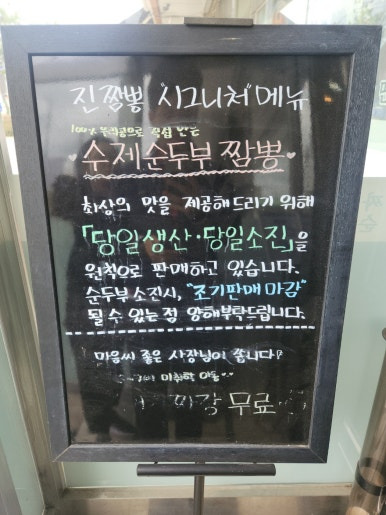 진짬뽕 "시그니처"메뉴
100% 직접 만드는
수제순두부 짬뽕
최상의 맛을 제공해드리기 위해
「당일생산·당일소진」을
원칙으로 판매하고 있습니다.
순두부 소진시, "조기판매 마감"
될 수 있는 점 양해부탁드립니다.
마음씨 좋은 사장님이 쏩니다!
미취학 아동
무료